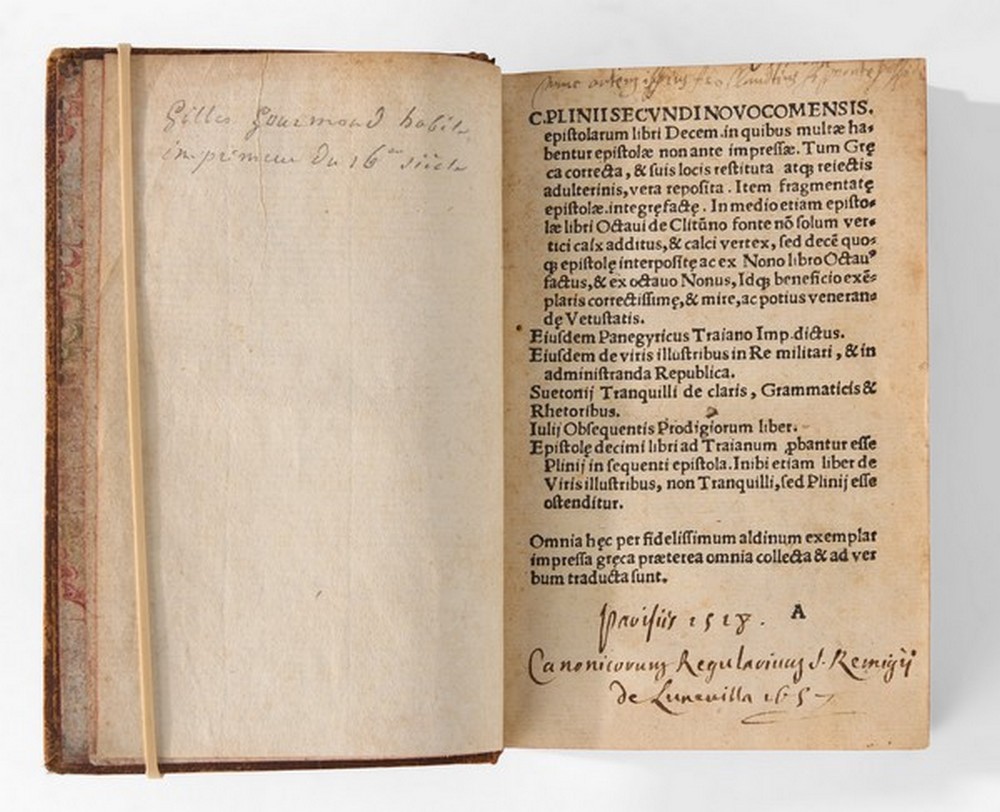 Gilles Gourmond habile
imprimeur du 16me siècle
C.PLINII SECVNDI NOVOCOMENSIS.
epistolarum libri Decem.in quibus multæ ha-
bentur epistolæ non ante impressæ. Tum Grę
ca correcta, & suis locis restituta atqꝫ reiectis
adulterinis, vera reposita. Item fragmentatę
epistolæ.integrę factę. In medio etiam episto-
læ libri Octaui de Clitūno fonte nō solum ver-
tici calx additus,& calci vertex, sed decē quo-
qꝫ epistolę interpositę ac ex Nono libro Octauꝰ
factus,& ex octauo Nonus, Idqꝫ beneficio exē-
plaris correctissimę,& mirę,ac potius veneran-
dę Vetustatis.
Eiusdem Panegyricus Traiano Imp.dictus.
Eiusdem de viris illustribus in Re militari, & in
administranda Republica.
Suetonij Tranquilli de claris, Grammaticis &
Rhetoribus.
Iulij Obsequentis Prodigiorum liber.
Epistolę decimi libri ad Traianum ꝓbantur esse
Plinij in sequenti epistola.Inibi etiam liber de
Viris illustribus, non Tranquilli,sed Plinij esse
ostenditur.
Omnia hęc per fidelissimum aldinum exemplar
impressa gręca præterea omnia collecta & ad ver
bum traducta sunt.
A
Parisiis 1518.
Canonicorum Regularium S. Remigij
de Lunavilla